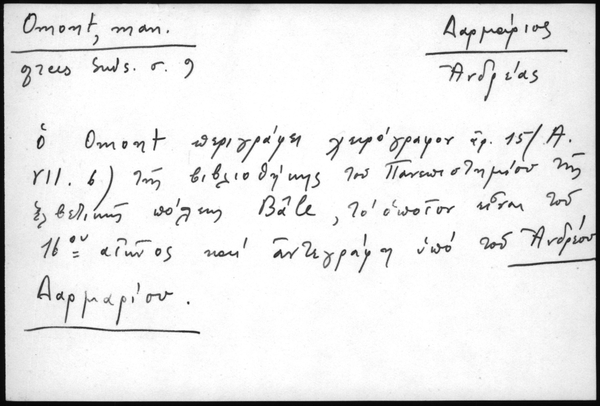 Omont, man.
grecs Suis. σ. 9
Δαρμάριος
Ἀνδρέας
ὁ Omont περιγράφει χειρόγραφον ἀρ. 15/A.
VII. 6) τῆς βιβλιοθήκης τοῦ Πανεπιστημίου τῆς
ἑλβετικῆς πόλης Bâle, τό ὁποῖον εἶναι τοῦ
16ου αἰῶνος καί ἀντεγράφη ὑπό τοῦ Ἀνδρέου
Δαρμαρίου.